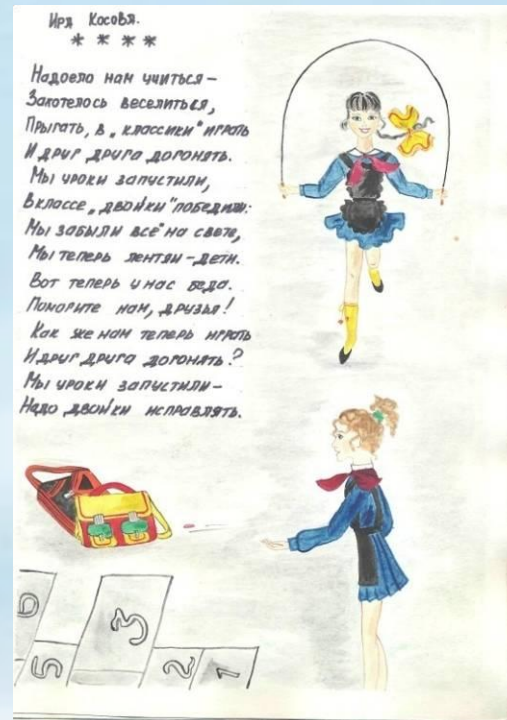 Ира Косова.
* * * *
Надоело нам учиться –
Захотелось веселиться,
Прыгать, в „классики" играть
И друг друга догонять.
Мы уроки запустили,
В классе „двойки" победили:
Мы забыли всё на свете,
Мы теперь лентяи – дети.
Вот теперь у нас беда.
Помогите нам, друзья!
Как же нам теперь играть
И друг друга догонять?
Мы уроки запустили –
Надо двойки исправлять.
6
5 3 2 1